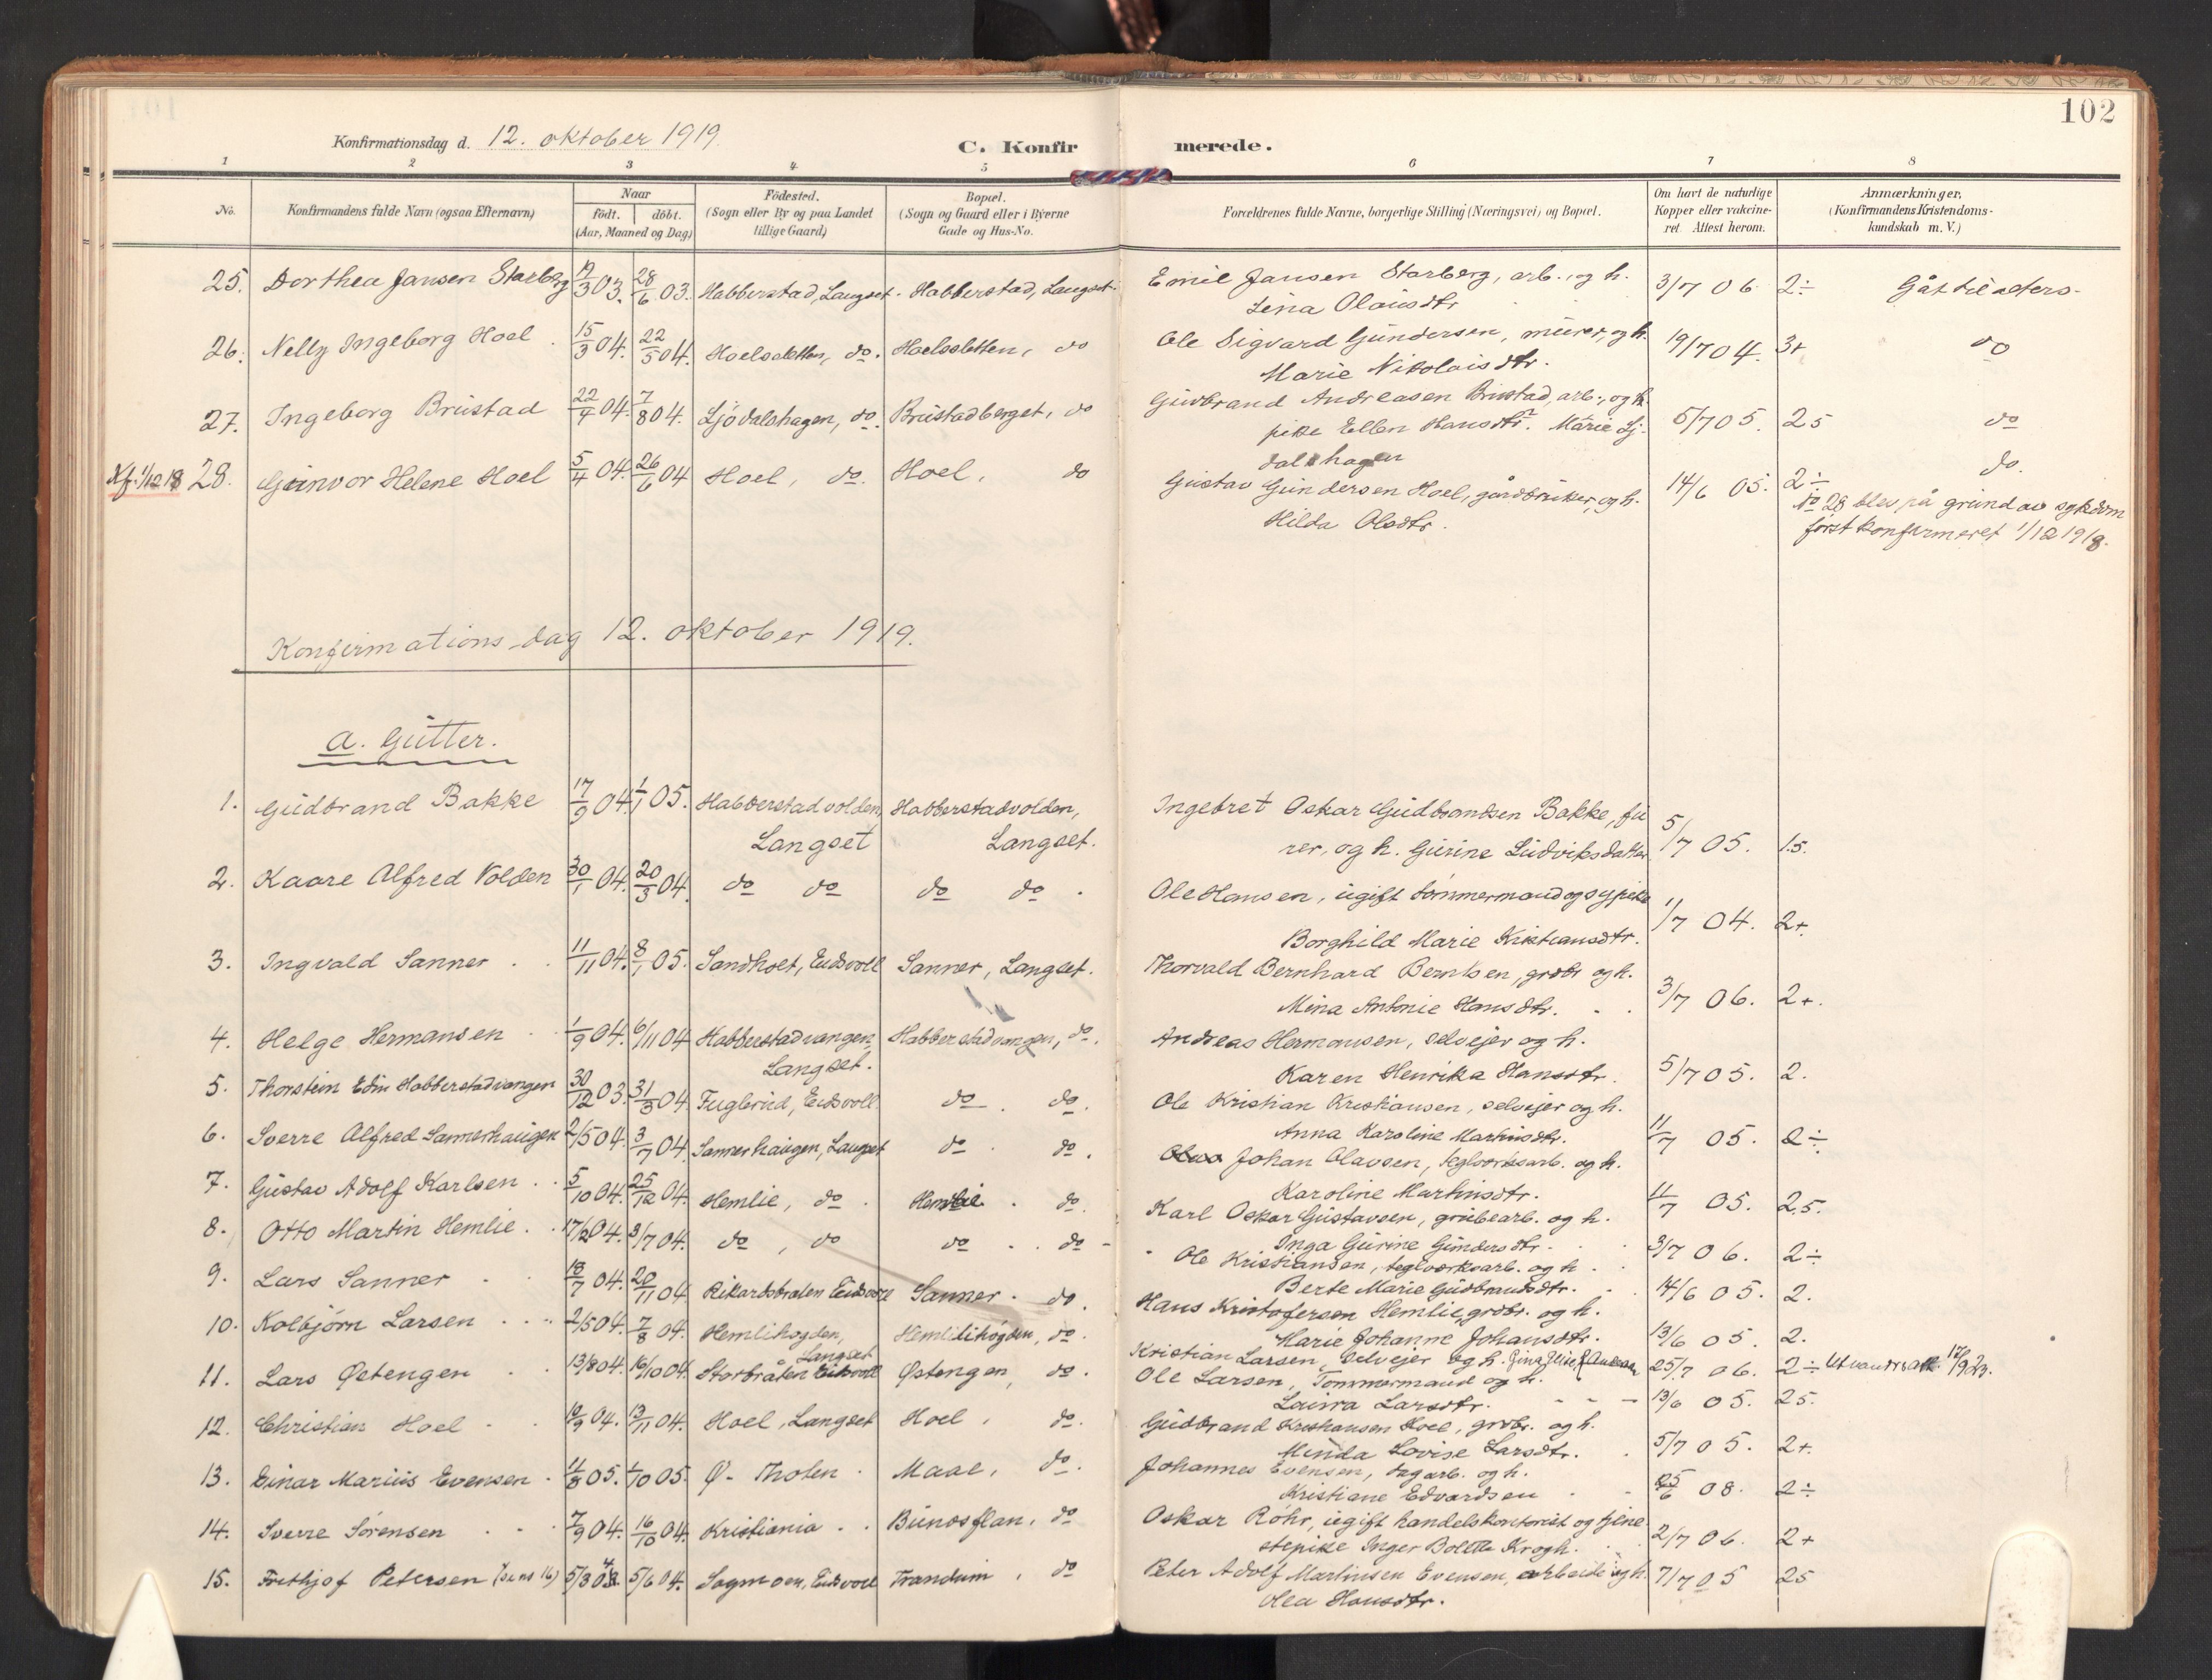 102
Konfirmationsdag d. 12. oktober 1919.
C. Konfirmerede.
1 2 3 4 5 6 7 8
No. Konfirmandens fulde Navn (ogsaa Efternavn) Naar födt. döbt. (Aar, Maaned og Dag) Födested. (Sogn eller By og paa Landet tillige Gaard) Bopæl. (Sogn og Gaard eller i Byerne Gade og Hus-No. Forældrenes fulde Navne, borgerlige Stilling (Næringsvei) og Bopæl. Om havt de naturlige Kopper eller vakcineret. Attest herom. Anmærkninger. (Konfirmandens Kristendomskundskab m. V.)
25. Dorthea Jansen Starberg 19/3 03. 28/6 03. Habberstad, Langset. Habberstad, Langset. Emil Jansen Starberg, arb., og h. 3/7 06 2÷ Gåt til alters.
Lina Olausdtr
26. Nelly Ingeborg Hoel 15/3 04. 22/5 04. Hoelsletten, do. Hoelsletten, do Ole Sigvard Gundersen, murer, og h. 19/7 04. 3+ do
Marie Nikolaisdtr.
27. Ingeborg Brustad 22/4 04. 7/8 04. Ljödalshagen, do. Brustadberget, do Gudbrand Andreasen Brustad, arb., og h. 5/7 05. 25 do
pike Ellen Hansdtr. Marie Lj-
dalshagen
Kf. 1/12 18 28. Gunvor Helene Hoel 5/4 04. 26/6 04 Hoel, do. Hoel, do Gustav Gundersen Hoel, gårdbruker, og h. 14/6 05. 2÷ do.
Hilda Olsdtr.
No 28 blev på grund av sykdom
først konfirmeret 1/12 1918.
Konfirmations-dag 12. oktober 1919.
a. Gutter.
1. Gudbrand Bakke 17/9 04. 1/1 05. Habberstadvolden, Habberstadvolden, Ingebret Oskar Gudbrandsen Bakke, fu
Langset Langset. rer, og h. Gurine Ludviksdatter 5/7 05. 1.5.
2. Kaare Alfred Volden 30/1 04. 20/3 04. do do do do. Ole Hansen, ugift tømmermand og sypike
Borghild Marie Kristiansdtr. 1/7 04. 2+.
3. Ingvald Sanner 11/11 04. 8/1 05. Sandholt, Eidsvoll Sanner, Langset. Thorvald Bernhard Berntsen, grdbr og h.
Mina Antonie Hansdtr. 3/7 06. 2+.
4. Helge Hermansen 1/9 04. 6/11 04 Habberstadvangen, Habberstadvangen, do. Andreas Hermansen, selvejer og h.
Langset. Karen Henrika Hansdtr. 5/7 05. 2.
5. Thorstein Edin Habberstadvangen 30/12 03. 31/3 04. Fuglerud, Eidsvoll do. do. Ole Kristian Kristiansen, selvejer og h.
Anna Karoline Martinsdtr. 11/7 05. 2÷
6. Sverre Alfred Sannerhaugen 2/5 04. 3/7 04. Sannerhaugen, Langset do. do. Johan Olavsen, teglverksarb. og h.
Karoline Martinsdtr. 11/7 05. 2.5.
7. Gustav Adolf Karlsen 5/10 04. 25/12 04. Hemlie, do. Hemlie. do. Karl Oskar Gustavsen, grubearb. og h.
Inga Gurine Gundersdtr. 3/7 06. 2÷
8. Otto Martin Hemlie 17/2 04. 3/7 04. do, do do. do Ole Kristiansen, teglverksarb. og h.
Berte Marie Gudbrandsdtr. 14/6 05. 2.
9. Lars Sanner 18/7 04. 20/11 04 Rikardsbraten Eidsvoll Sanner. do. Hans Kristofersen Hemlie, grdbr. og h.
Marie Johanne Johansdtr. 13/6 05. 2.
10. Kolbjørn Larsen 2/5 04. 7/8 04. Hemlihøgden, Langset Hemlihøgden, do. Kristian Larsen, selvejer og h. 25/7 06. 2÷ 
11. Lars Østengen 13/8 04. 16/10 04. Storbråten Eidsvoll Østengen, do. Ole Larsen, Tømmermand og h.
Laura Larsdtr. 13/6 05. 25.
12. Christian Hoel 10/9 04. 13/11 04. Hoel, Langset Hoel, do. Gudbrand Kristiansen Hoel, grdbr. og h.
Minda Lovise Larsdtr. 5/7 05. 2+.
13. Einar Marius Evensen 11/8 05. 1/10 05. Ø. Tholen. Maae, do. Johannes Evensen, dagarb. og h.
Kristiane Edvardsen 25/6 08. 2÷
14. Sverre Sørensen 7/9 04. 16/10 04. Kristiania. Bunosflan, do Oskar Röhr, ugift handelskontorist og tjene
stepike Inger Bolette Krogh. 2/7 06. 2+
15. Frithjof Petersen 5/3 04. 5/6 04. Sagmoen, Eidsvoll Trandum, do Peter Adolf Martinsen Evensen, arbeider og h. 7/7 05 25
Olea Hansdtr.